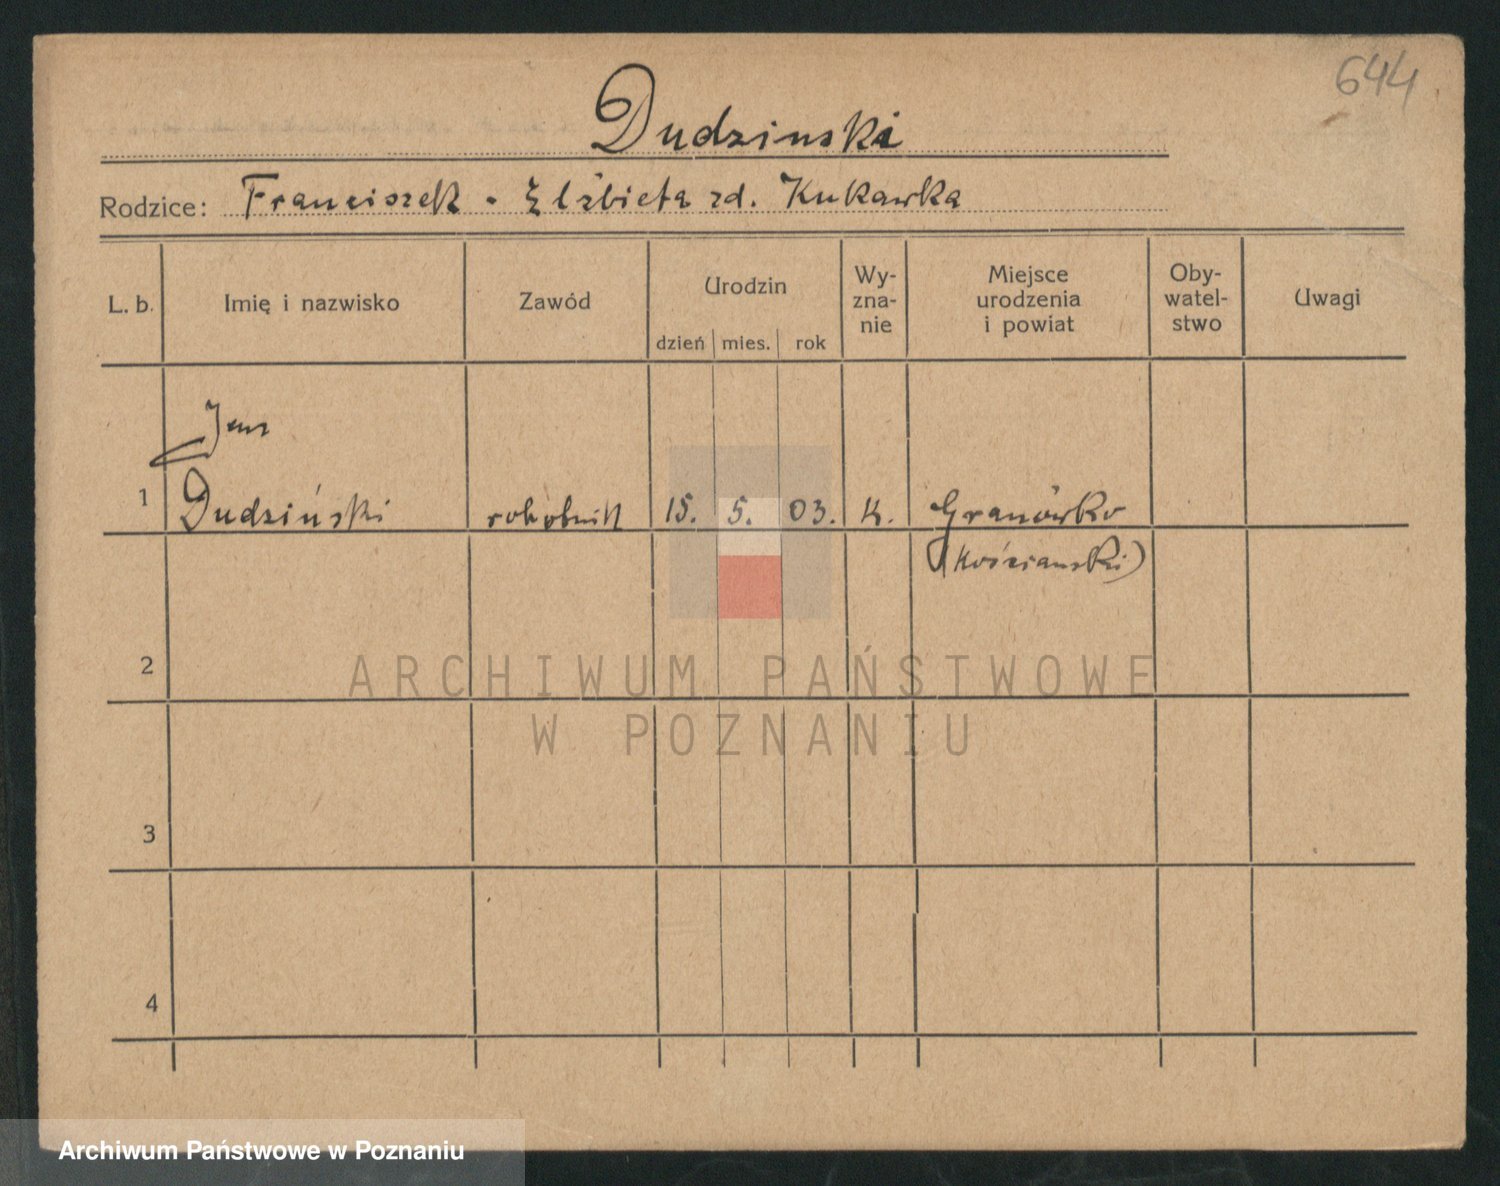 644
Dudzinski
Rodzice: Franciszek - Elżbieta zd. Kukawka
L. b.
Imię i nazwisko
Zawód
Urodzin
dzień mies. rok
Wy-
zna-
nie
Miejsce
urodzenia
i powiat
Oby-
watel-
stwo
Uwagi
Jan
1 Dudziński robotnik 15. 5. 03. k. Granówko
(Kościański)
2
3
4
ARCHIWUM PAŃSTWOWE
W POZNANIU
Archiwum Państwowe w Poznaniu